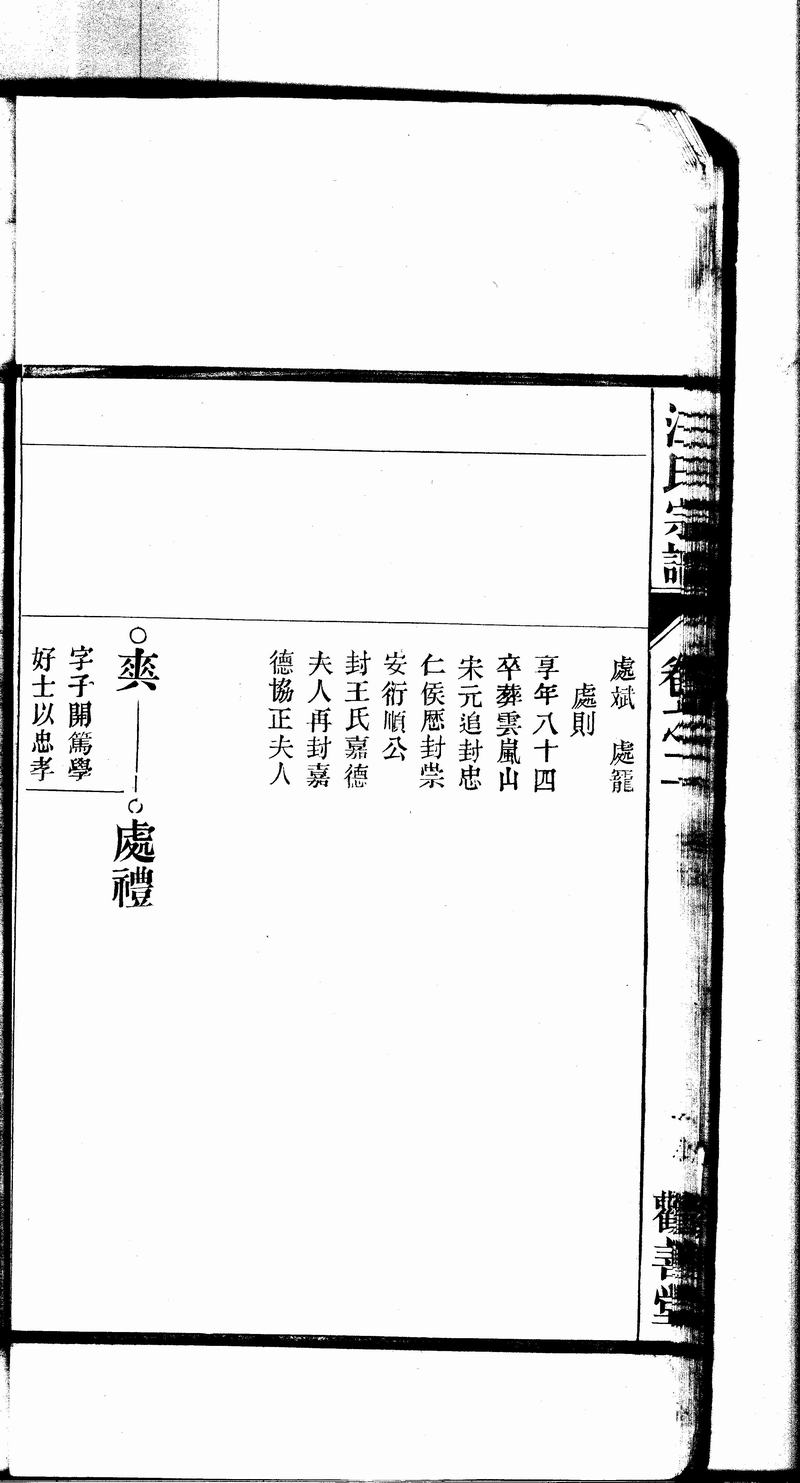 汪氏宗譜
卷之二
觀善堂
處斌　處籠
處則
享年八十四
卒葬雲嵐山
宋元追封忠
仁侯歷封崇
安衍順公
封王氏嘉德
夫人再封嘉
德協正夫人
爽
處禮
字子開篤學
好士以忠孝